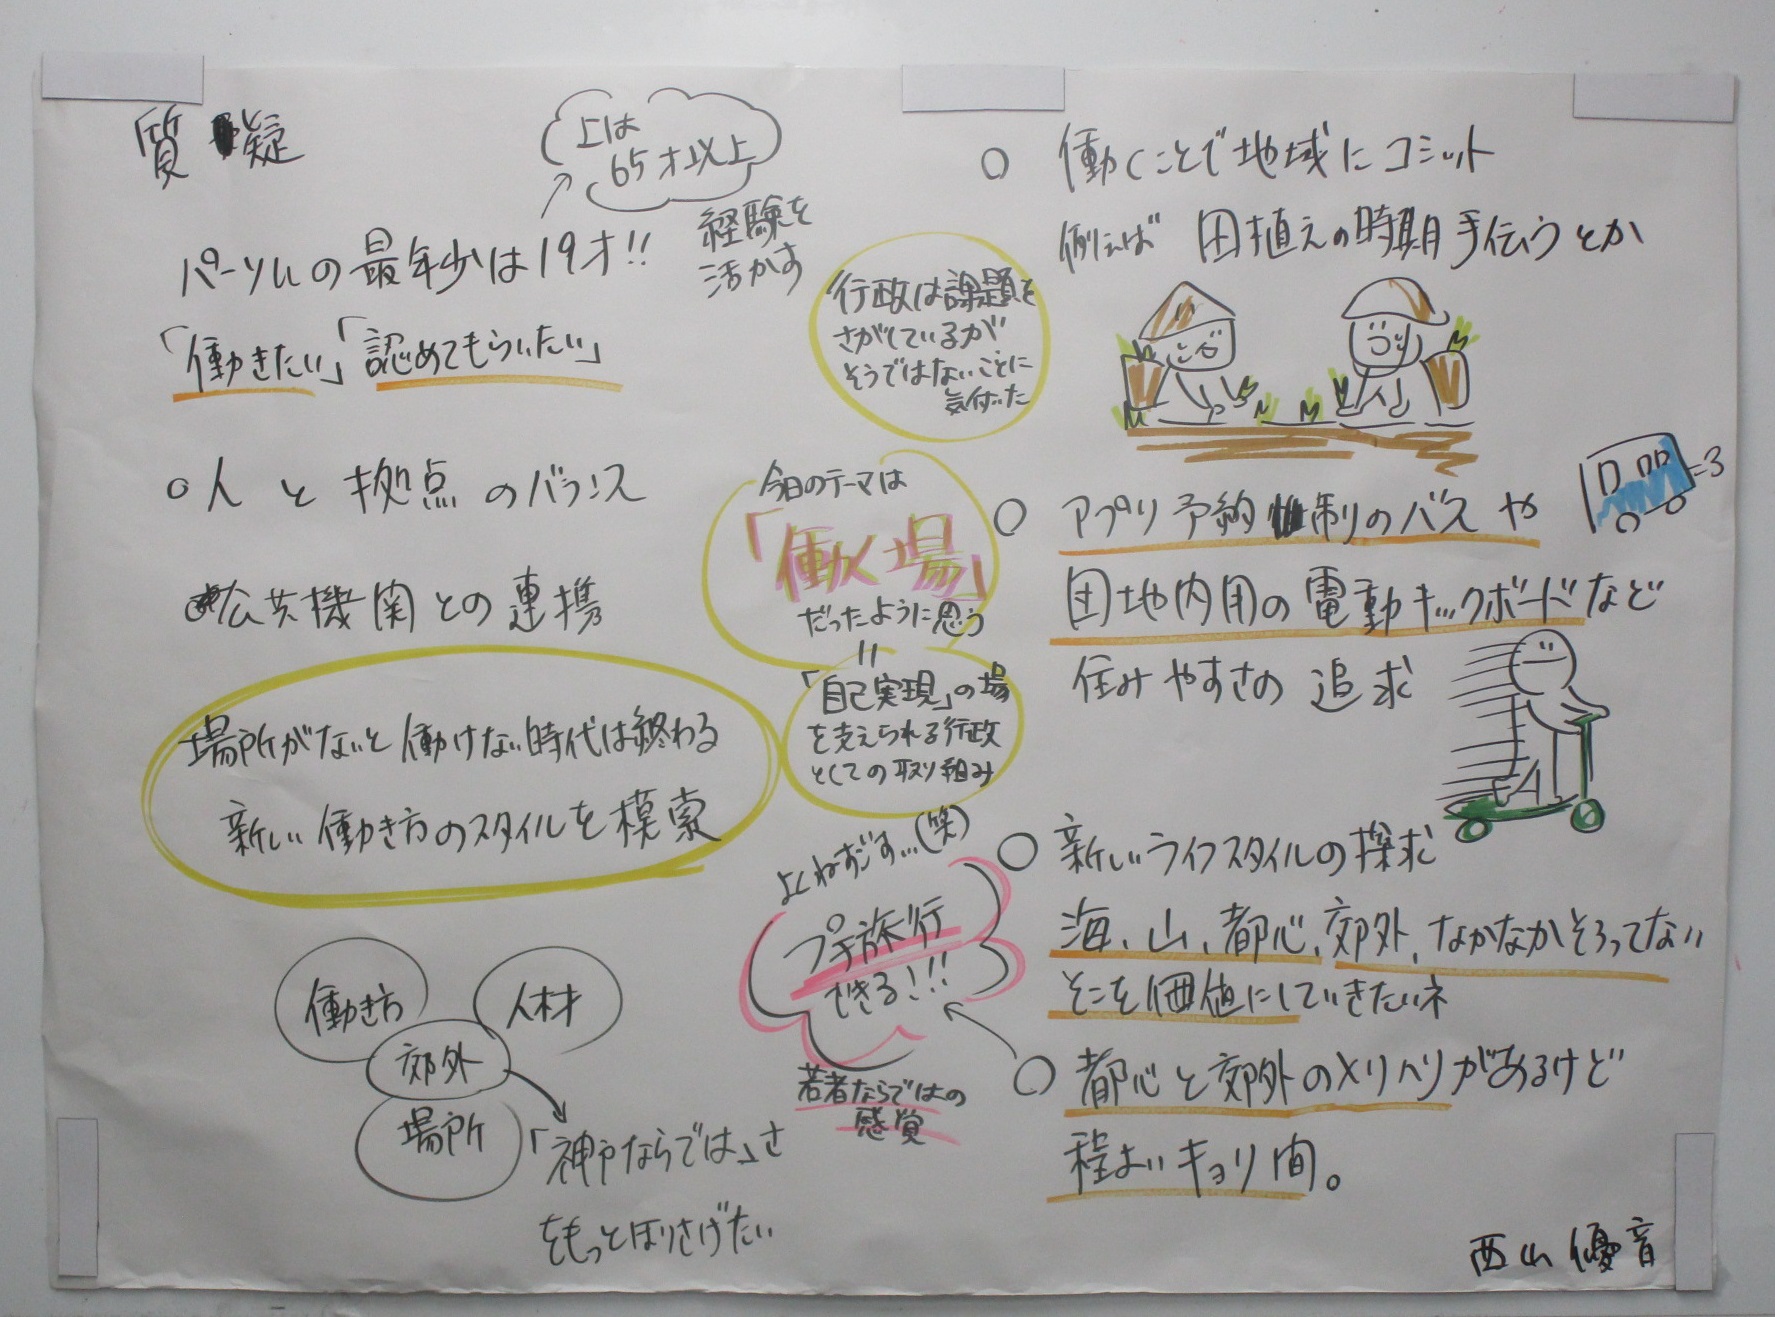 質疑
上は
65才以上
経験を
活かす
パーソルの最年少は19才!!
「働きたい」「認めてもらいたい」
○人と拠点のバランス
公共機関との連携
場所がないと働けない時代は終わる
新しい働き方のスタイルを模索
働き方
人材
郊外
場所
「神戸ならでは」さ
をもっとほりさげたい
行政は課題を
さがしているが
そうではないことに
気付いた
今日のテーマは
「働く場」
だったように思う
=
「自己実現」の場
を支えられる行政
としての取り組み
よくねすごす…(笑)
プチ旅行
できる!!!
若者ならではの
感覚
○ 働くことで地域にコミット
例えば 田植えの時期手伝うとか
○ アプリ予約制のバスや
団地内用の電動キックボードなど
住みやすさの追求
○ 新しいライフスタイルの探求
海、山、都心、郊外、なかなかそろってない
そこを価値にしていきたいネ
○ 都心と郊外のメリハリがあるけど
程よいキョリ間。
西山 優音